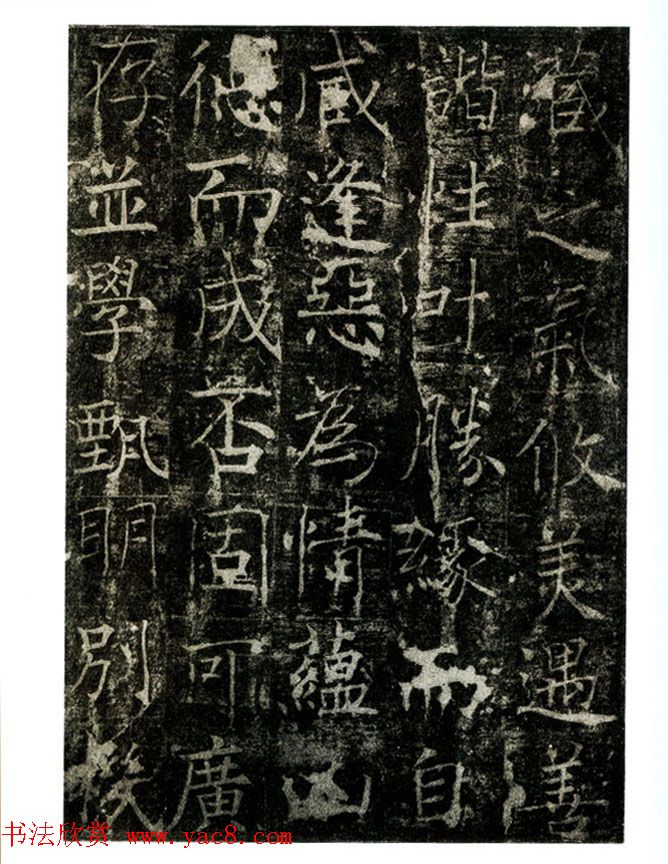 藏之氣攸美遇善
諧性叶勝緣而自
咸逢惡為情蘊凶
德而成否固可廣
存並學甄眀別機
书法欣赏 www.yac8.com